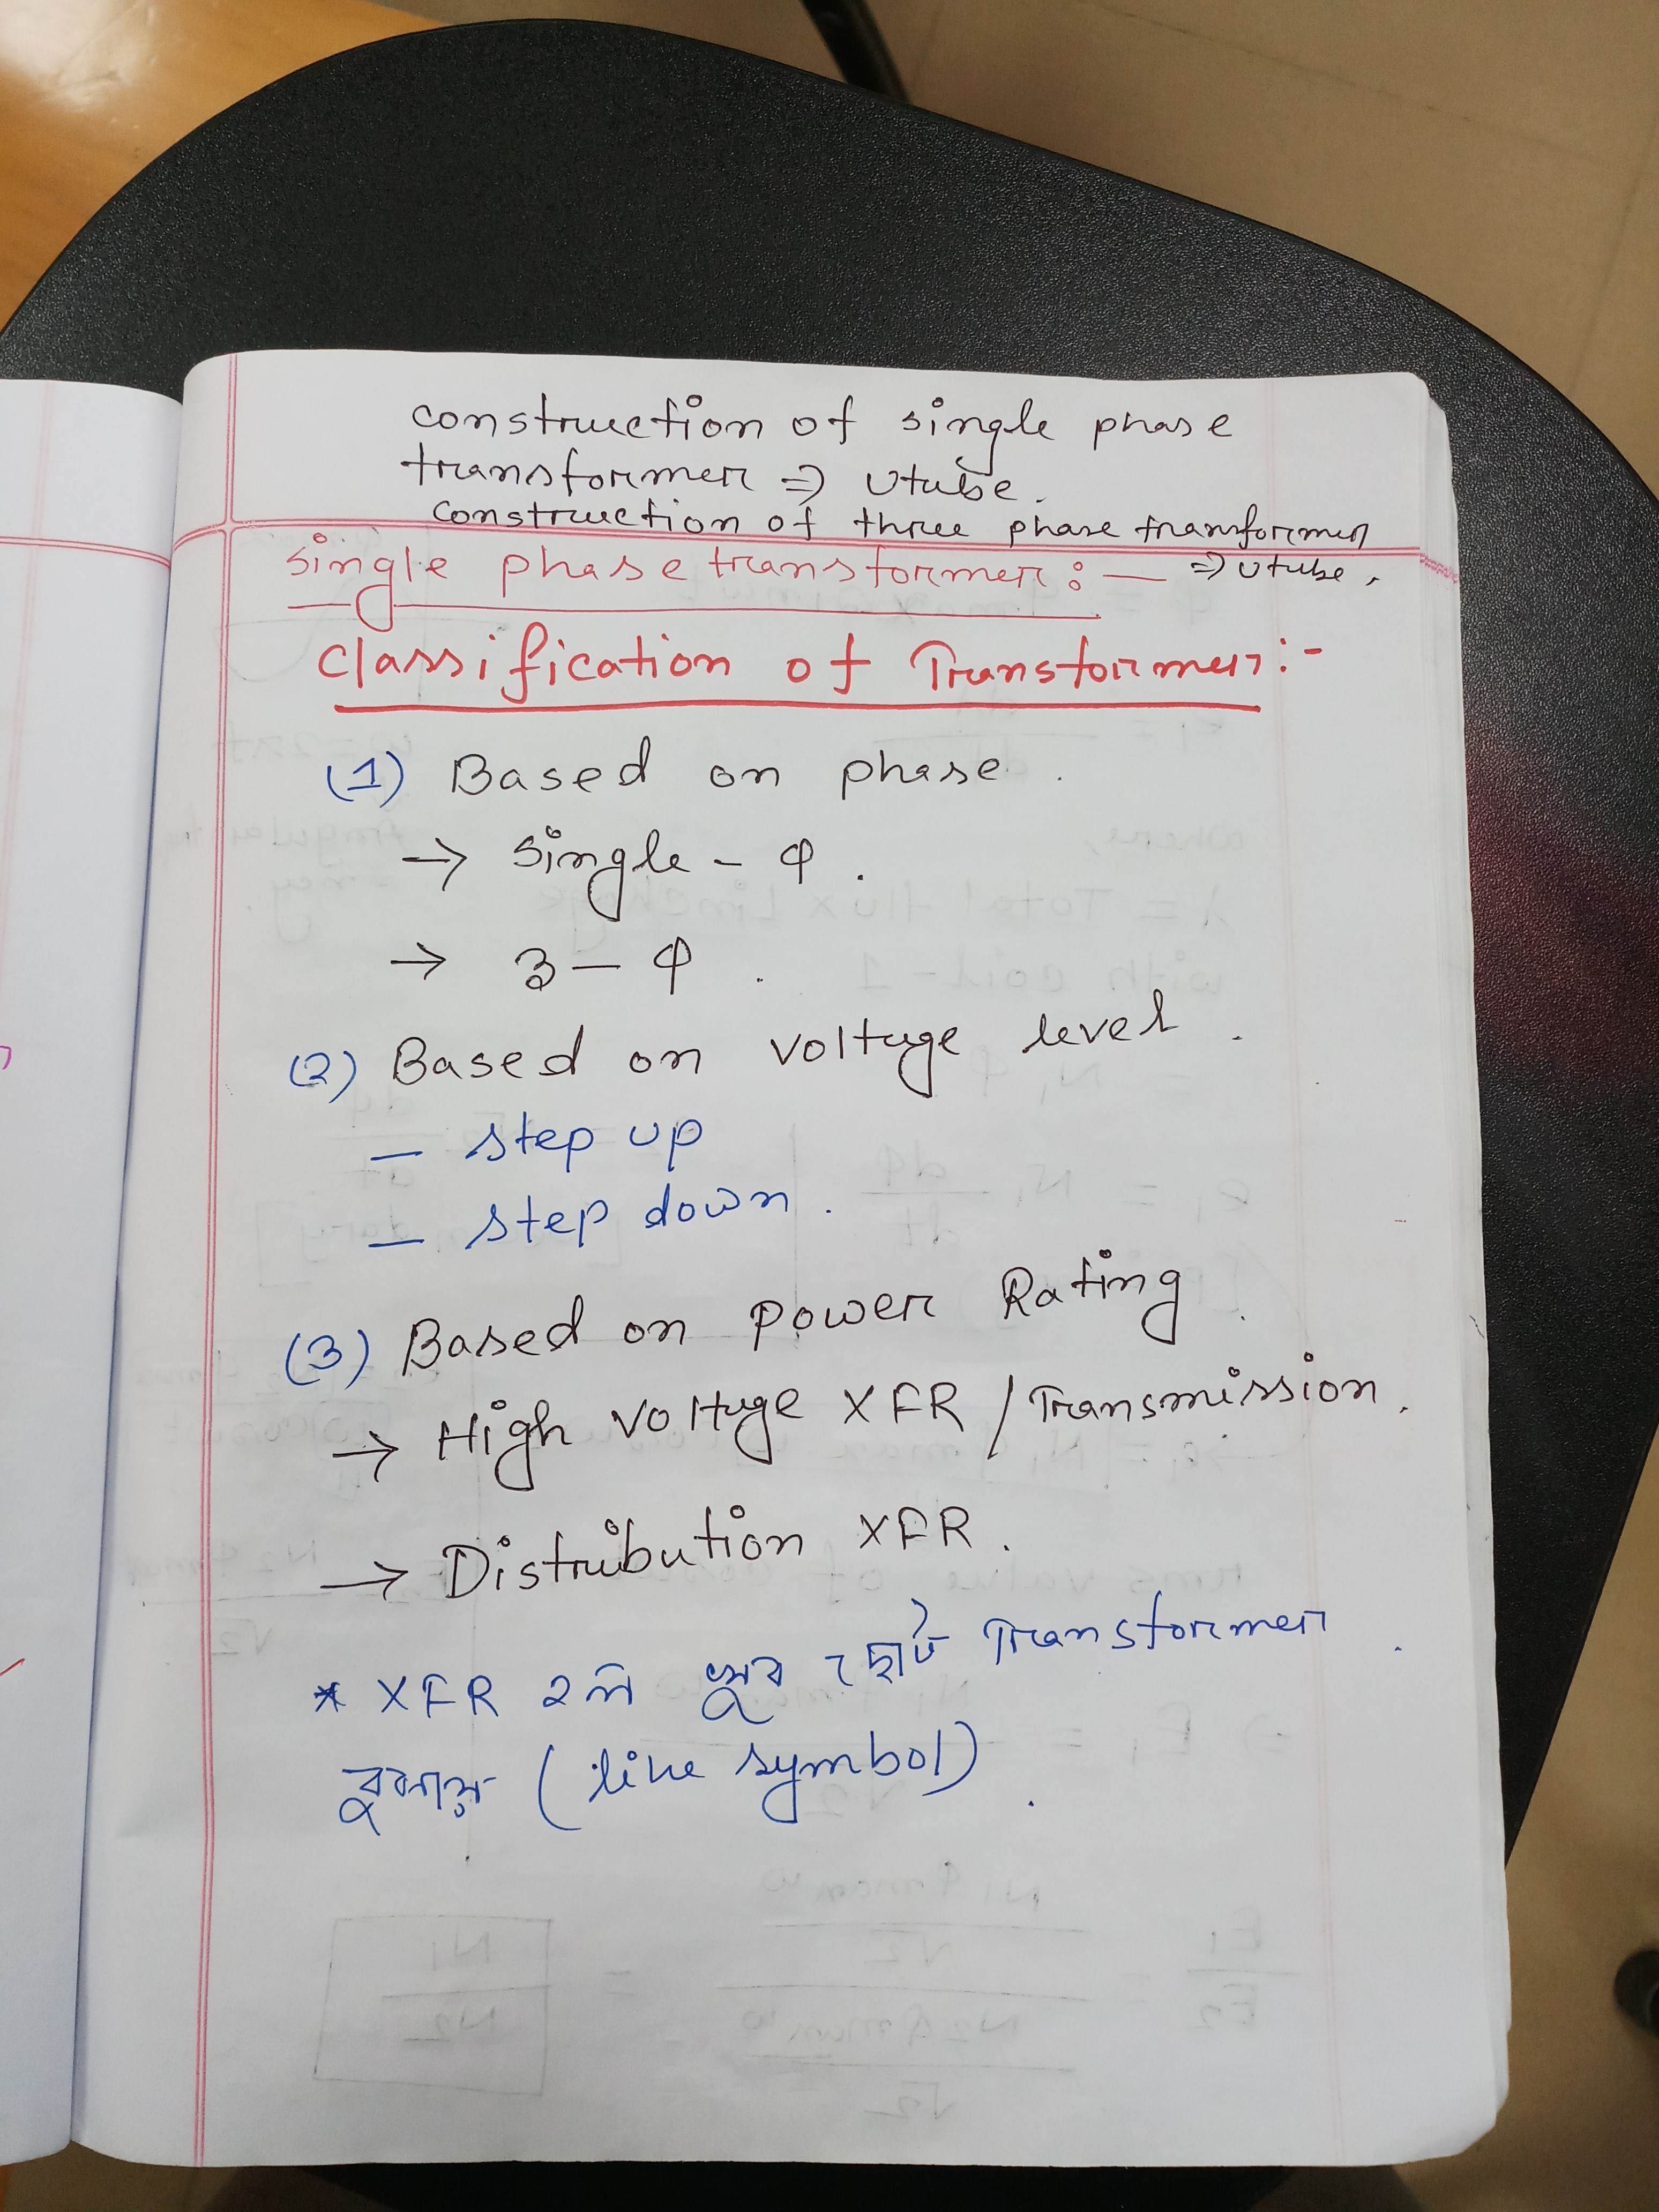 construction of single phase
transformer => Utube.
construction of three phase transformer
=> Utube.
single phase transformer:—
Classification of Transformer:-
(1) Based on phase.
→ single - φ.
→ 3 - φ.
(2) Based on voltage level.
— step up
— step down.
(3) Based on power Rating.
→ High voltage XFR / Transmission.
→ Distribution XFR.
* XFR হল খুব ছোট Transformer.
বুঝায় (like symbol).